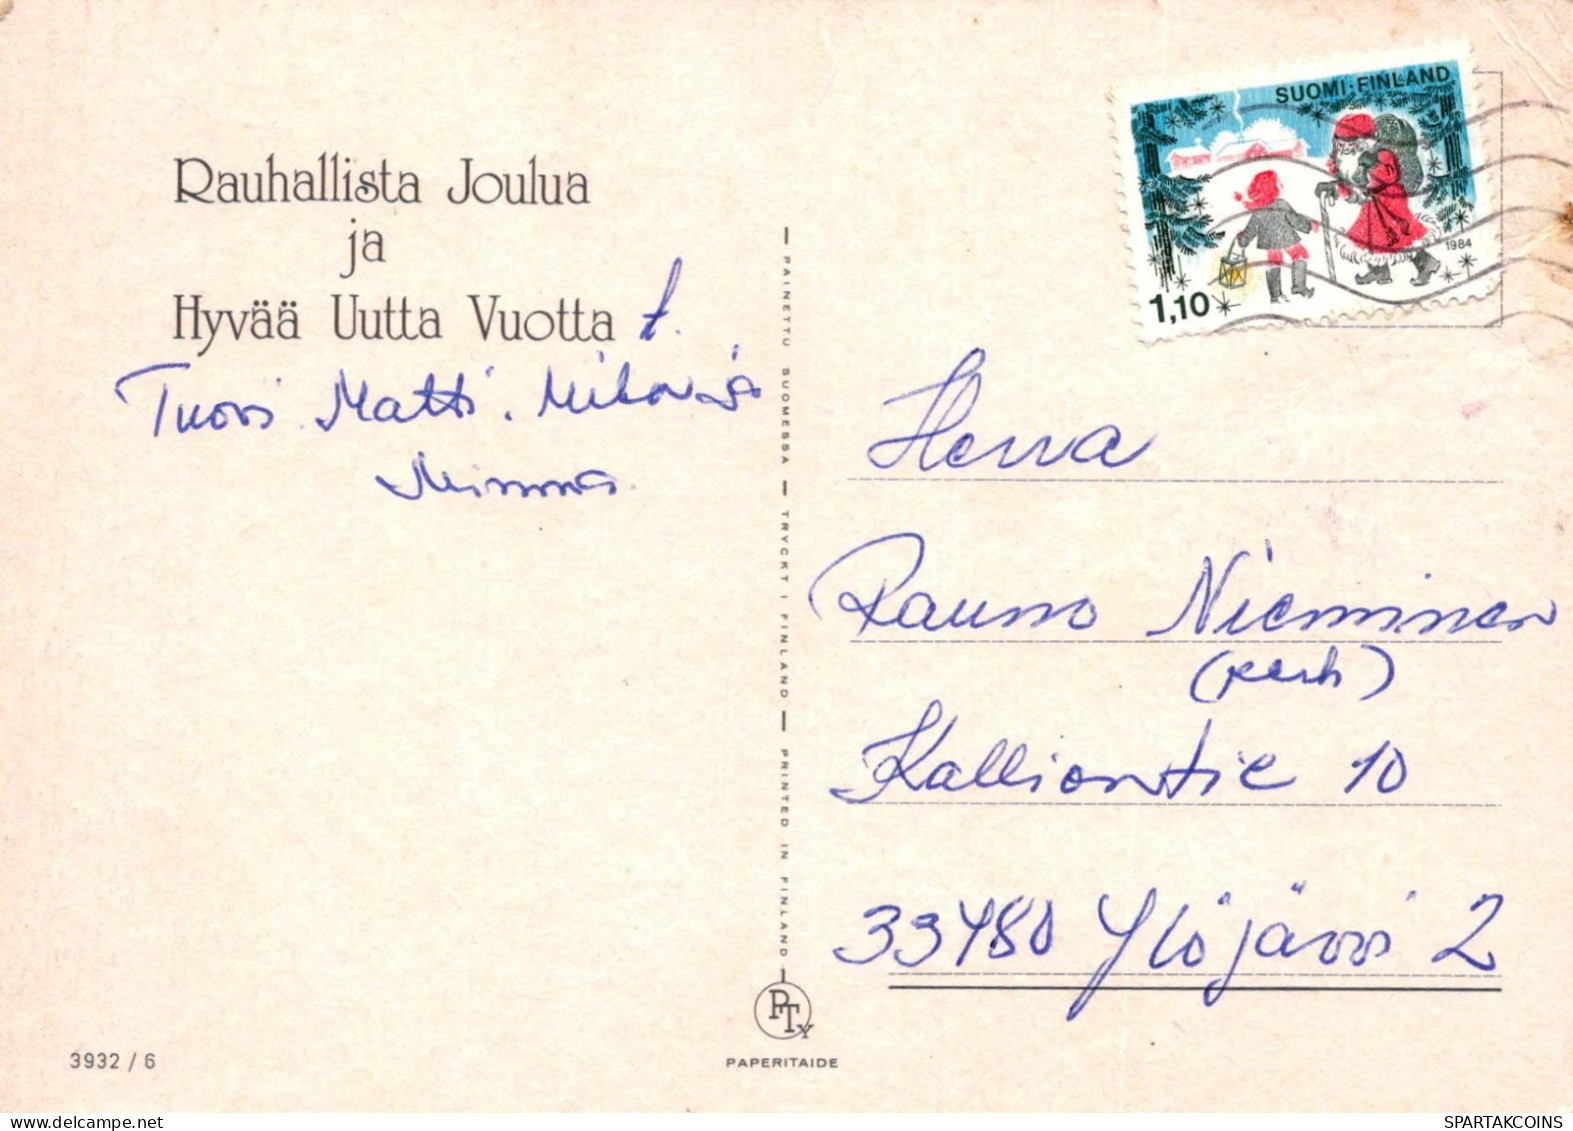 Rauhallista Joulua
ja
Hyvää Uutta Vuotta t.
Tuovi Matti. Mika ja
Minna.
SUOMI·FINLAND
1984
1,10
Herra
Rauno Nieminen
(perh)
Kalliontie 10
33480 Ylöjärvi 2
PAINETTU SUOMESSA — TRYCKT I FINLAND — PRINTED IN FINLAND
PTY
PAPERITAIDE
3932 / 6
SPARTAKCOINS